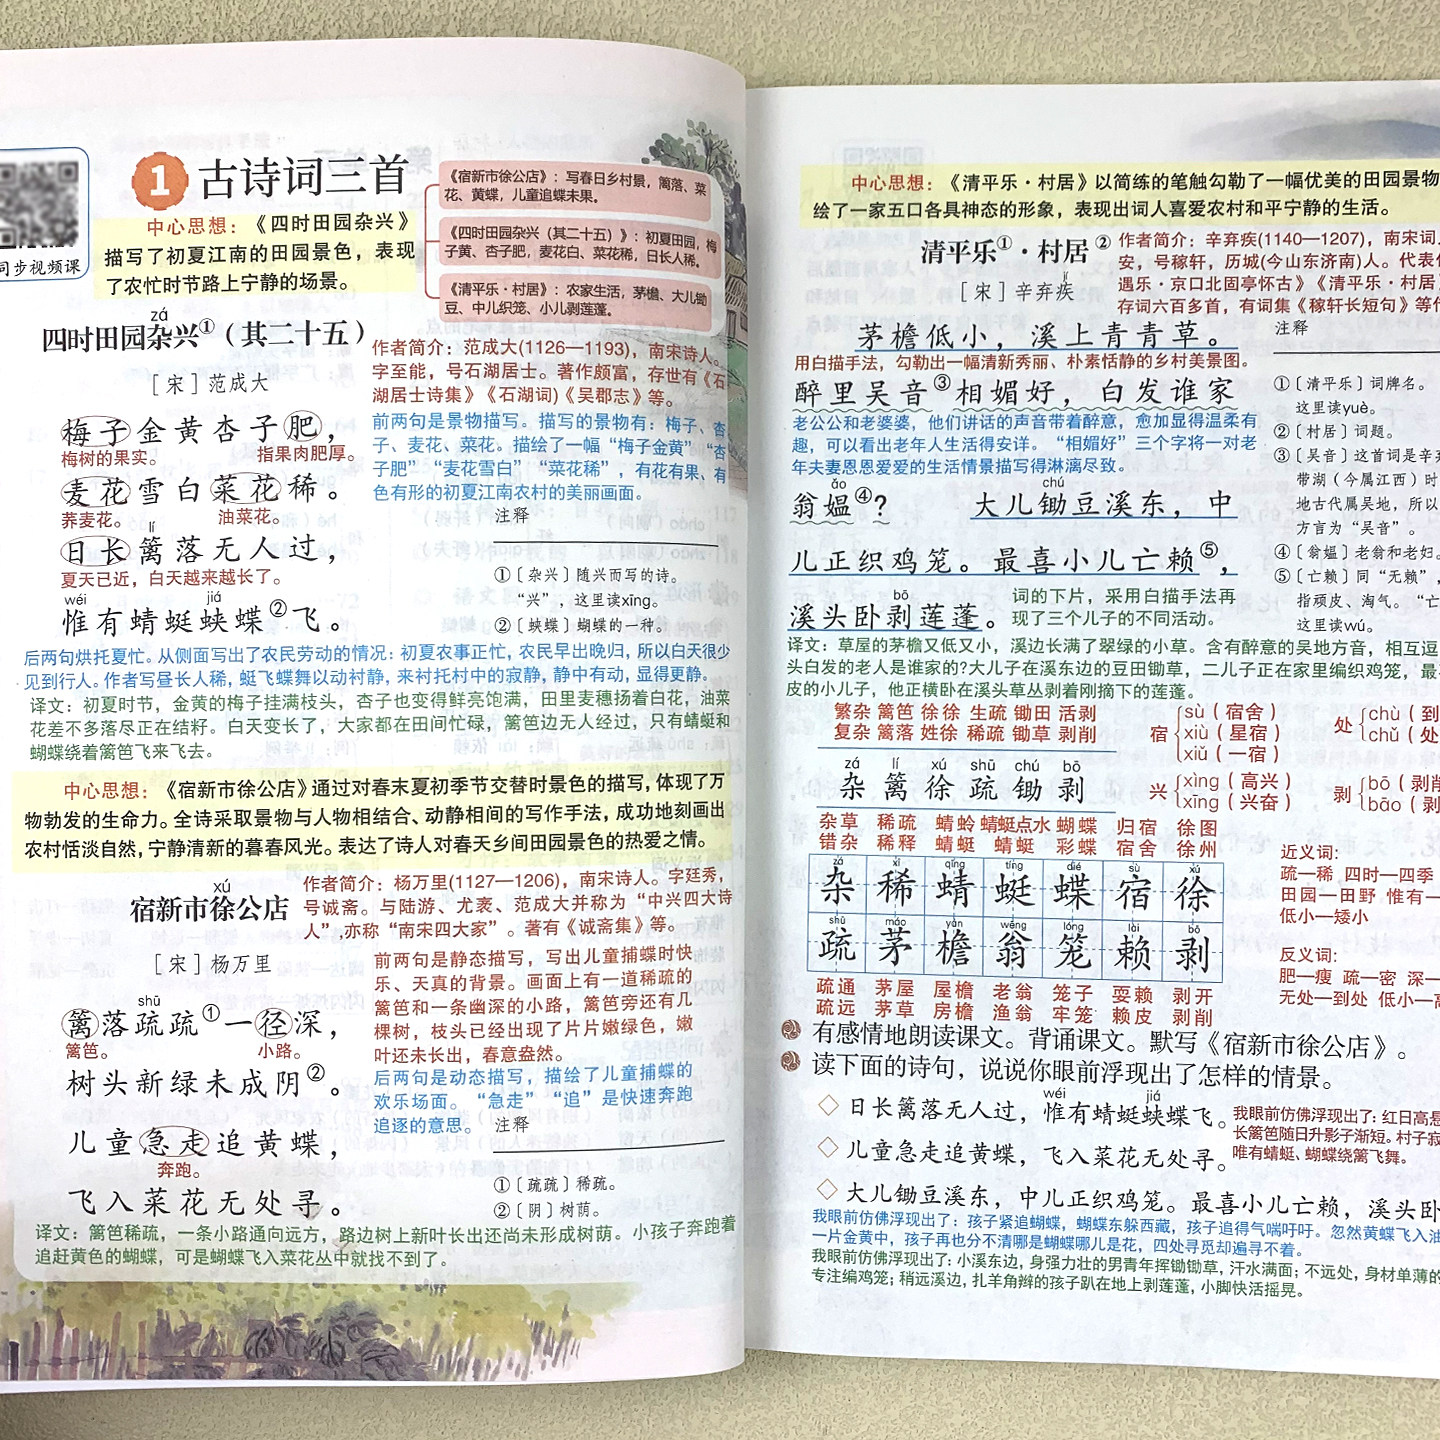 同步视频课
1 古诗词三首
中心思想：《四时田园杂兴》
描写了初夏江南的田园景色，表现
了农忙时节路上宁静的场景。
《宿新市徐公店》：写春日乡村景，篱落、菜
花、黄蝶，儿童追蝶未果。
《四时田园杂兴（其二十五）》：初夏田园，梅
子黄、杏子肥，麦花白、菜花稀，日长人稀。
《清平乐·村居》：农家生活，茅檐、大儿锄
豆、中儿织笼、小儿剥莲蓬。
zá
四时田园杂兴①（其二十五）
［宋］范成大
作者简介：范成大(1126—1193)，南宋诗人。
字至能，号石湖居士。著作颇富，存世有《石
湖居士诗集》《石湖词》《吴郡志》等。
梅子金黄杏子肥，
梅树的果实。 指果肉肥厚。
麦花雪白菜花稀。
荞麦花。 油菜花。
lí
日长篱落无人过，
夏天已近，白天越来越长了。
wéi jiá
惟有蜻蜓蛱蝶②飞。
前两句是景物描写。描写的景物有：梅子、杏
子、麦花、菜花。描绘了一幅“梅子金黄”“杏
子肥”“麦花雪白”“菜花稀”，有花有果、有
色有形的初夏江南农村的美丽画面。
注释
①〔杂兴〕随兴而写的诗。
“兴”，这里读xìng。
②〔蛱蝶〕蝴蝶的一种。
后两句烘托夏忙。从侧面写出了农民劳动的情况：初夏农事正忙，农民早出晚归，所以白天很少
见到行人。作者写昼长人稀，蜓飞蝶舞以动衬静，来衬托村中的寂静，静中有动，显得更静。
译文：初夏时节，金黄的梅子挂满枝头，杏子也变得鲜亮饱满，田里麦穗扬着白花，油菜
花差不多落尽正在结籽。白天变长了，大家都在田间忙碌，篱笆边无人经过，只有蜻蜓和
蝴蝶绕着篱笆飞来飞去。
中心思想：《宿新市徐公店》通过对春末夏初季节交替时景色的描写，体现了万
物勃发的生命力。全诗采取景物与人物相结合、动静相间的写作手法，成功地刻画出
农村恬淡自然，宁静清新的暮春风光。表达了诗人对春天乡间田园景色的热爱之情。
xú
宿新市徐公店
［宋］杨万里
作者简介：杨万里(1127—1206)，南宋诗人。字廷秀，
号诚斋。与陆游、尤袤、范成大并称为“中兴四大诗
人”，亦称“南宋四大家”。著有《诚斋集》等。
shū
篱落疏疏①一径深，
篱笆。 小路。
树头新绿未成阴②。
儿童急走追黄蝶，
奔跑。
飞入菜花无处寻。
前两句是静态描写，写出儿童捕蝶时快
乐、天真的背景。画面上有一道稀疏的
篱笆和一条幽深的小路，篱笆旁还有几
棵树，枝头已经出现了片片嫩绿色，嫩
叶还未长出，春意盎然。
后两句是动态描写，描绘了儿童捕蝶的
欢乐场面。“急走”“追”是快速奔跑
追逐的意思。
注释
①〔疏疏〕稀疏。
②〔阴〕树荫。
译文：篱笆稀疏，一条小路通向远方，路边树上新叶长出还尚未形成树荫。小孩子奔跑着
追赶黄色的蝴蝶，可是蝴蝶飞入菜花丛中就找不到了。
中心思想：《清平乐·村居》以简练的笔触勾勒了一幅优美的田园景物
绘了一家五口各具神态的形象，表现出词人喜爱农村和平宁静的生活。
清平乐①·村居②
jí
［宋］辛弃疾
作者简介：辛弃疾(1140—1207)，南宋词人
安，号稼轩，历城(今山东济南)人。代表作
遇乐·京口北固亭怀古》《清平乐·村居》
存词六百多首，有词集《稼轩长短句》等
茅檐低小，溪上青青草。
用白描手法，勾勒出一幅清新秀丽、朴素恬静的乡村美景图。
醉里吴音③相媚好，白发谁家
老公公和老婆婆，他们讲话的声音带着醉意，愈加显得温柔有
趣，可以看出老年人生活得安详。“相媚好”三个字将一对老
年夫妻恩恩爱爱的生活情景描写得淋漓尽致。
ǎo chú
翁媪④？ 大儿锄豆溪东，中
儿正织鸡笼。最喜小儿亡赖⑤，
bō
溪头卧剥莲蓬。
词的下片，采用白描手法再
现了三个儿子的不同活动。
注释
①〔清平乐〕词牌名。
这里读yuè。
②〔村居〕词题。
③〔吴音〕这首词是辛弃
带湖（今属江西）时
地古代属吴地，所以
方言为“吴音”。
④〔翁媪〕老翁和老妇。
⑤〔亡赖〕同“无赖”，
指顽皮、淘气。“亡
这里读wú。
译文：草屋的茅檐又低又小，溪边长满了翠绿的小草。含有醉意的吴地方音，相互逗
头白发的老人是谁家的?大儿子在溪东边的豆田锄草，二儿子正在家里编织鸡笼，最
皮的小儿子，他正横卧在溪头草丛剥着刚摘下的莲蓬。
繁杂 篱笆 徐徐 生疏 锄田 活剥
复杂 篱落 姓徐 稀疏 锄草 剥削
宿 sù（宿舍）
xiù（星宿）
xiǔ（一宿）
处 chù（到
chǔ（处
zá lí xú shū chú bō
杂 篱 徐 疏 锄 剥
兴 xìng（高兴）
xīng（兴奋）
剥 bō（剥削
bāo（剥
杂草 稀疏 蜻蛉 蜻蜓点水 蝴蝶 归宿 徐图
错杂 稀释 蜻蜓 蜻蜓 彩蝶 宿舍 徐州
zá xī qīng tíng dié sù xú
杂 稀 蜻 蜓 蝶 宿 徐
shū máo yán wēng lóng lài bō
疏 茅 檐 翁 笼 赖 剥
疏通 茅屋 屋檐 老翁 笼子 耍赖 剥开
疏远 茅草 房檐 渔翁 牢笼 赖皮 剥削
近义词：
疏—稀 四时—四季
田园—田野 惟有—
低小—矮小
反义词：
肥—瘦 疏—密 深—
无处—到处 低小—高
有感情地朗读课文。背诵课文。默写《宿新市徐公店》。
读下面的诗句，说说你眼前浮现出了怎样的情景。
wéi jiá
◇ 日长篱落无人过，惟有蜻蜓蛱蝶飞。
我眼前仿佛浮现出了：红日高悬
长篱笆随日升影子渐短。村子寂
唯有蜻蜓、蝴蝶绕篱飞舞。
◇ 儿童急走追黄蝶，飞入菜花无处寻。
◇ 大儿锄豆溪东，中儿正织鸡笼。最喜小儿亡赖，溪头卧
我眼前仿佛浮现出了：孩子紧追蝴蝶，蝴蝶东躲西藏，孩子追得气喘吁吁。忽然黄蝶飞入油
一片金黄中，孩子再也分不清哪是蝴蝶哪儿是花，四处寻觅却遍寻不着。
我眼前仿佛浮现出了：小溪东边，身强力壮的男青年挥锄锄草，汗水满面；不远处，身材单薄的
专注编鸡笼；稍远溪边，扎羊角辫的孩子趴在地上剥莲蓬，小脚快活摇晃。